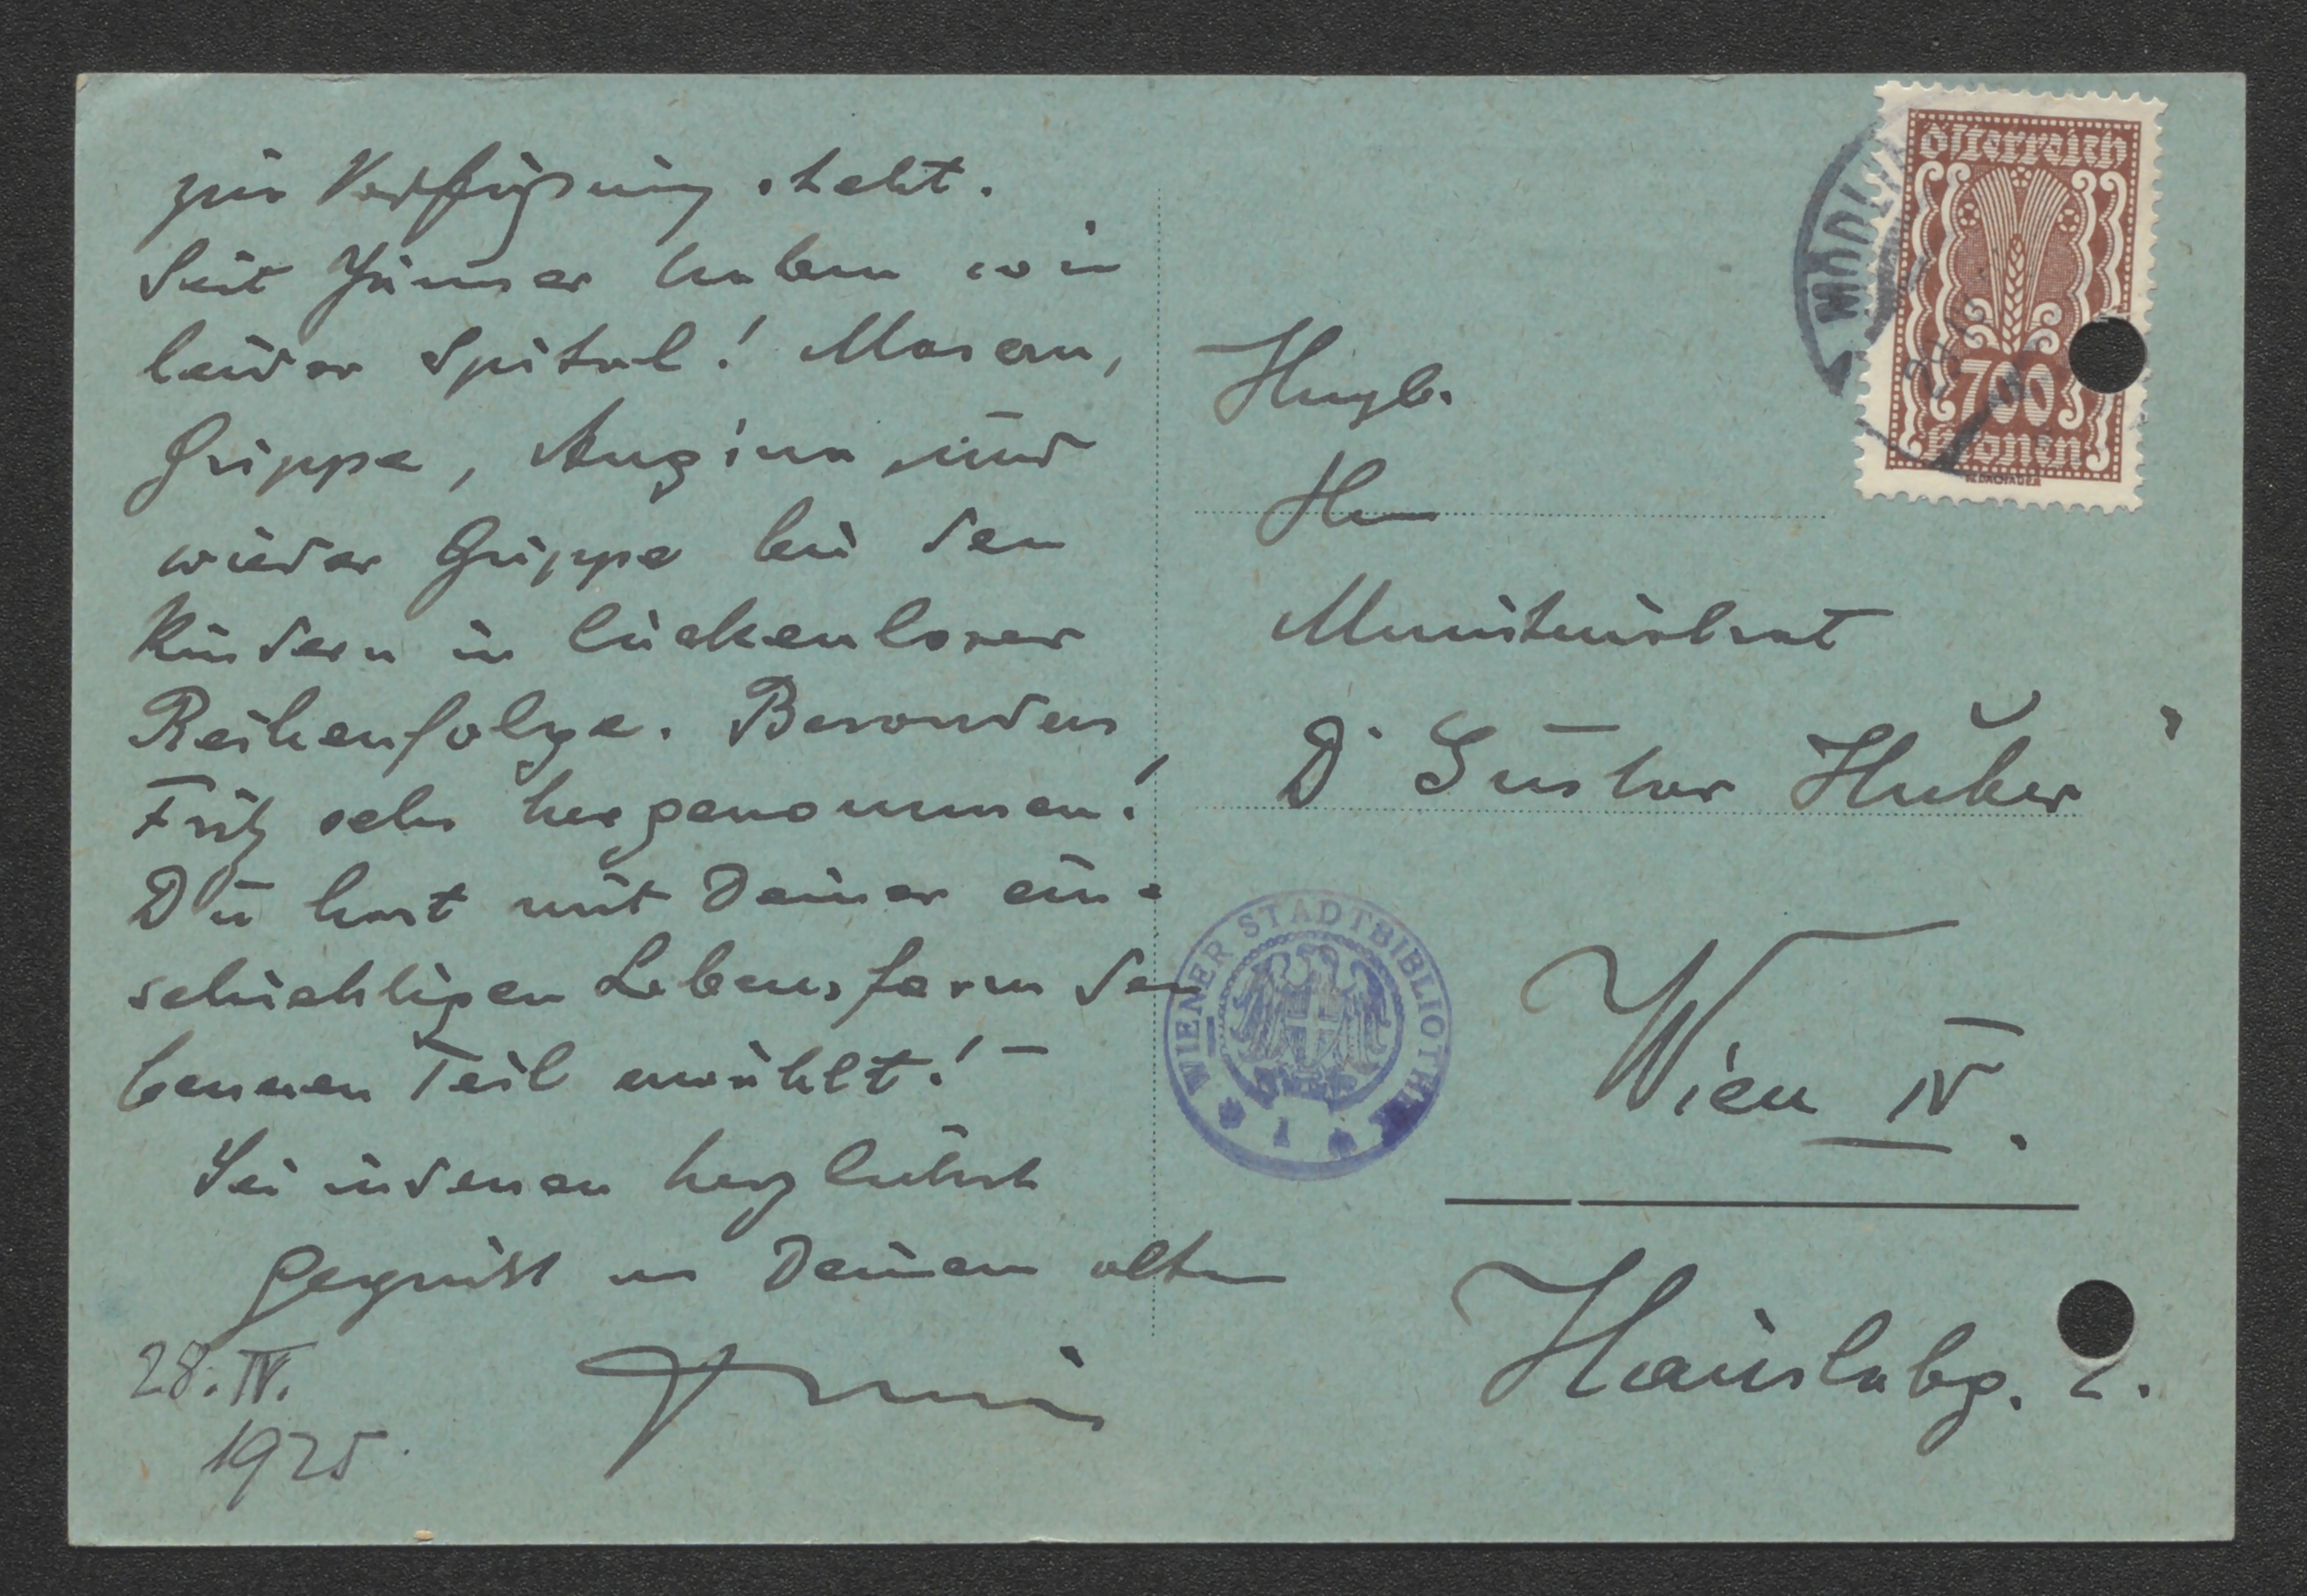 zur Verfügung steht.
Seit Jänner haben wir
leider Spital! Masern,
Grippe, Angina und
wieder Grippe bei den
Kindern in lückenloser
Reihenfolge. Besonders
Fritz sehr hergenommen!
Du hast mit Deiner ein-
schichtigen Lebensform den
besseren Teil erwählt! –
Sei indessen herzlichst
gegrüsst von Deinem alten
28. IV.
1925.
österreich
700
Kronen
MÖDLING
Hrn
Ministerialrat
Dr Gustav Huber
WIENER STADTBIBLIOTHEK
Wien IV.
Hauslabg. 2.